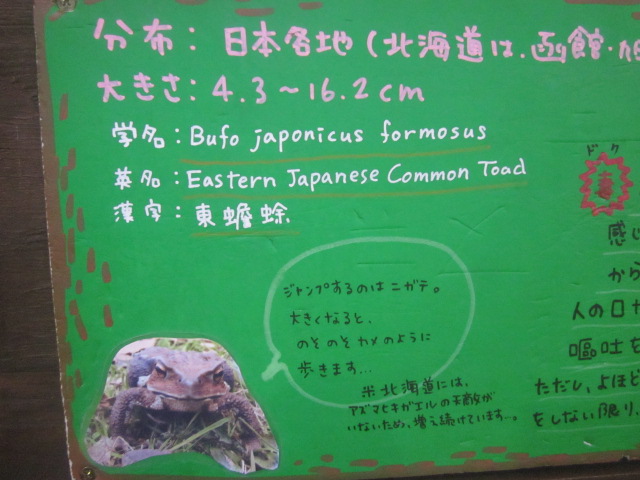 分布：日本各地（北海道は、函館・旭
大きさ：4.3〜16.2cm
学名：Bufo japonicus formosus
英名：Eastern Japanese Common Toad
漢字：東蟾蜍
ジャンプするのはニガテ。
大きくなると、
のそのそカメのように
歩きます…
※北海道には、
アズマヒキガエルの天敵が
いないため、増え続けています…。
ドク
毒
感じ
から
人の口か
嘔吐を
ただし、よほど
をしない限り、